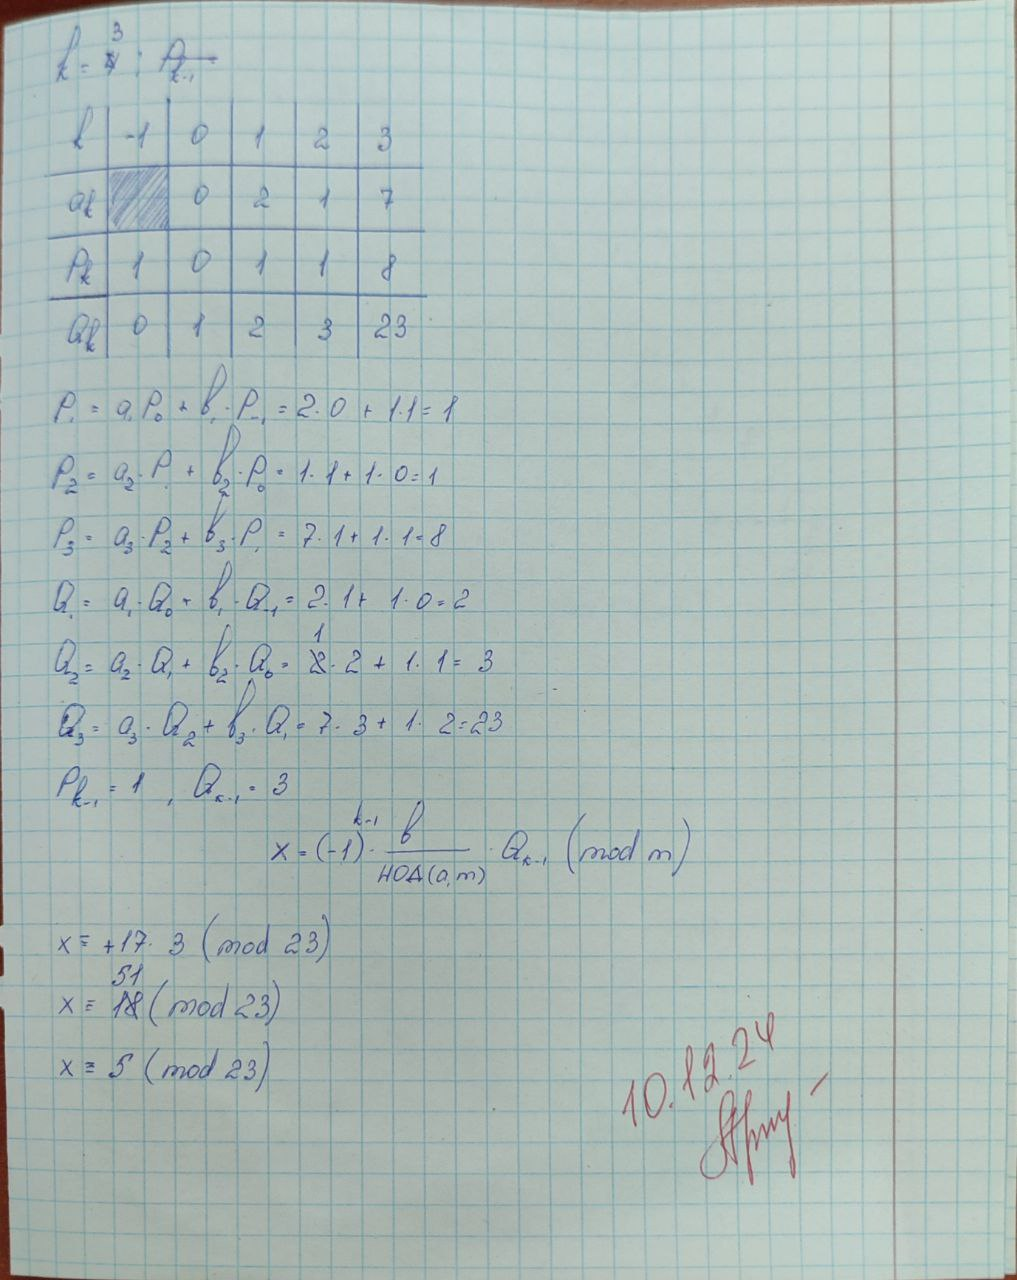 k = 3 : P_{k-1}
k -1 0 1 2 3
a_k 0 2 1 7
P_k 1 0 1 1 8
Q_k 0 1 2 3 23
P_1 = a_1 P_0 + b_1 · P_{-1} = 2·0 + 1·1 = 1
P_2 = a_2 · P_1 + b_2 · P_0 = 1·1 + 1·0 = 1
P_3 = a_3 · P_2 + b_3 · P_1 = 7·1 + 1·1 = 8
Q_1 = a_1 · Q_0 + b_1 · Q_{-1} = 2·1 + 1·0 = 2
Q_2 = a_2 · Q_1 + b_2 · Q_0 = 1·2 + 1·1 = 3
Q_3 = a_3 · Q_2 + b_3 · Q_1 = 7·3 + 1·2 = 23
P_{k-1} = 1 , Q_{k-1} = 3
x = (-1)^{k-1} · b / НОД(a,m) · Q_{k-1} (mod m)
x ≡ +17 · 3 (mod 23)
x ≡ 51 (mod 23)
x ≡ 5 (mod 23)
10.12.24